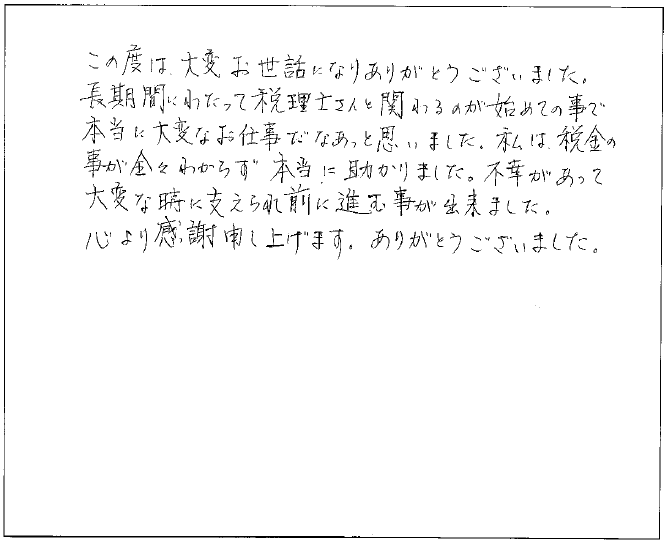 この度は、大変お世話になりありがとうございました。
長期間にわたって税理士さんと関わるのが始めての事で
本当に大変なお仕事だなあっと思いました。私は、税金の
事が全々わからず本当に助かりました。不幸があって
大変な時に支えられ前に進む事が出来ました。
心より感謝申し上げます。ありがとうございました。